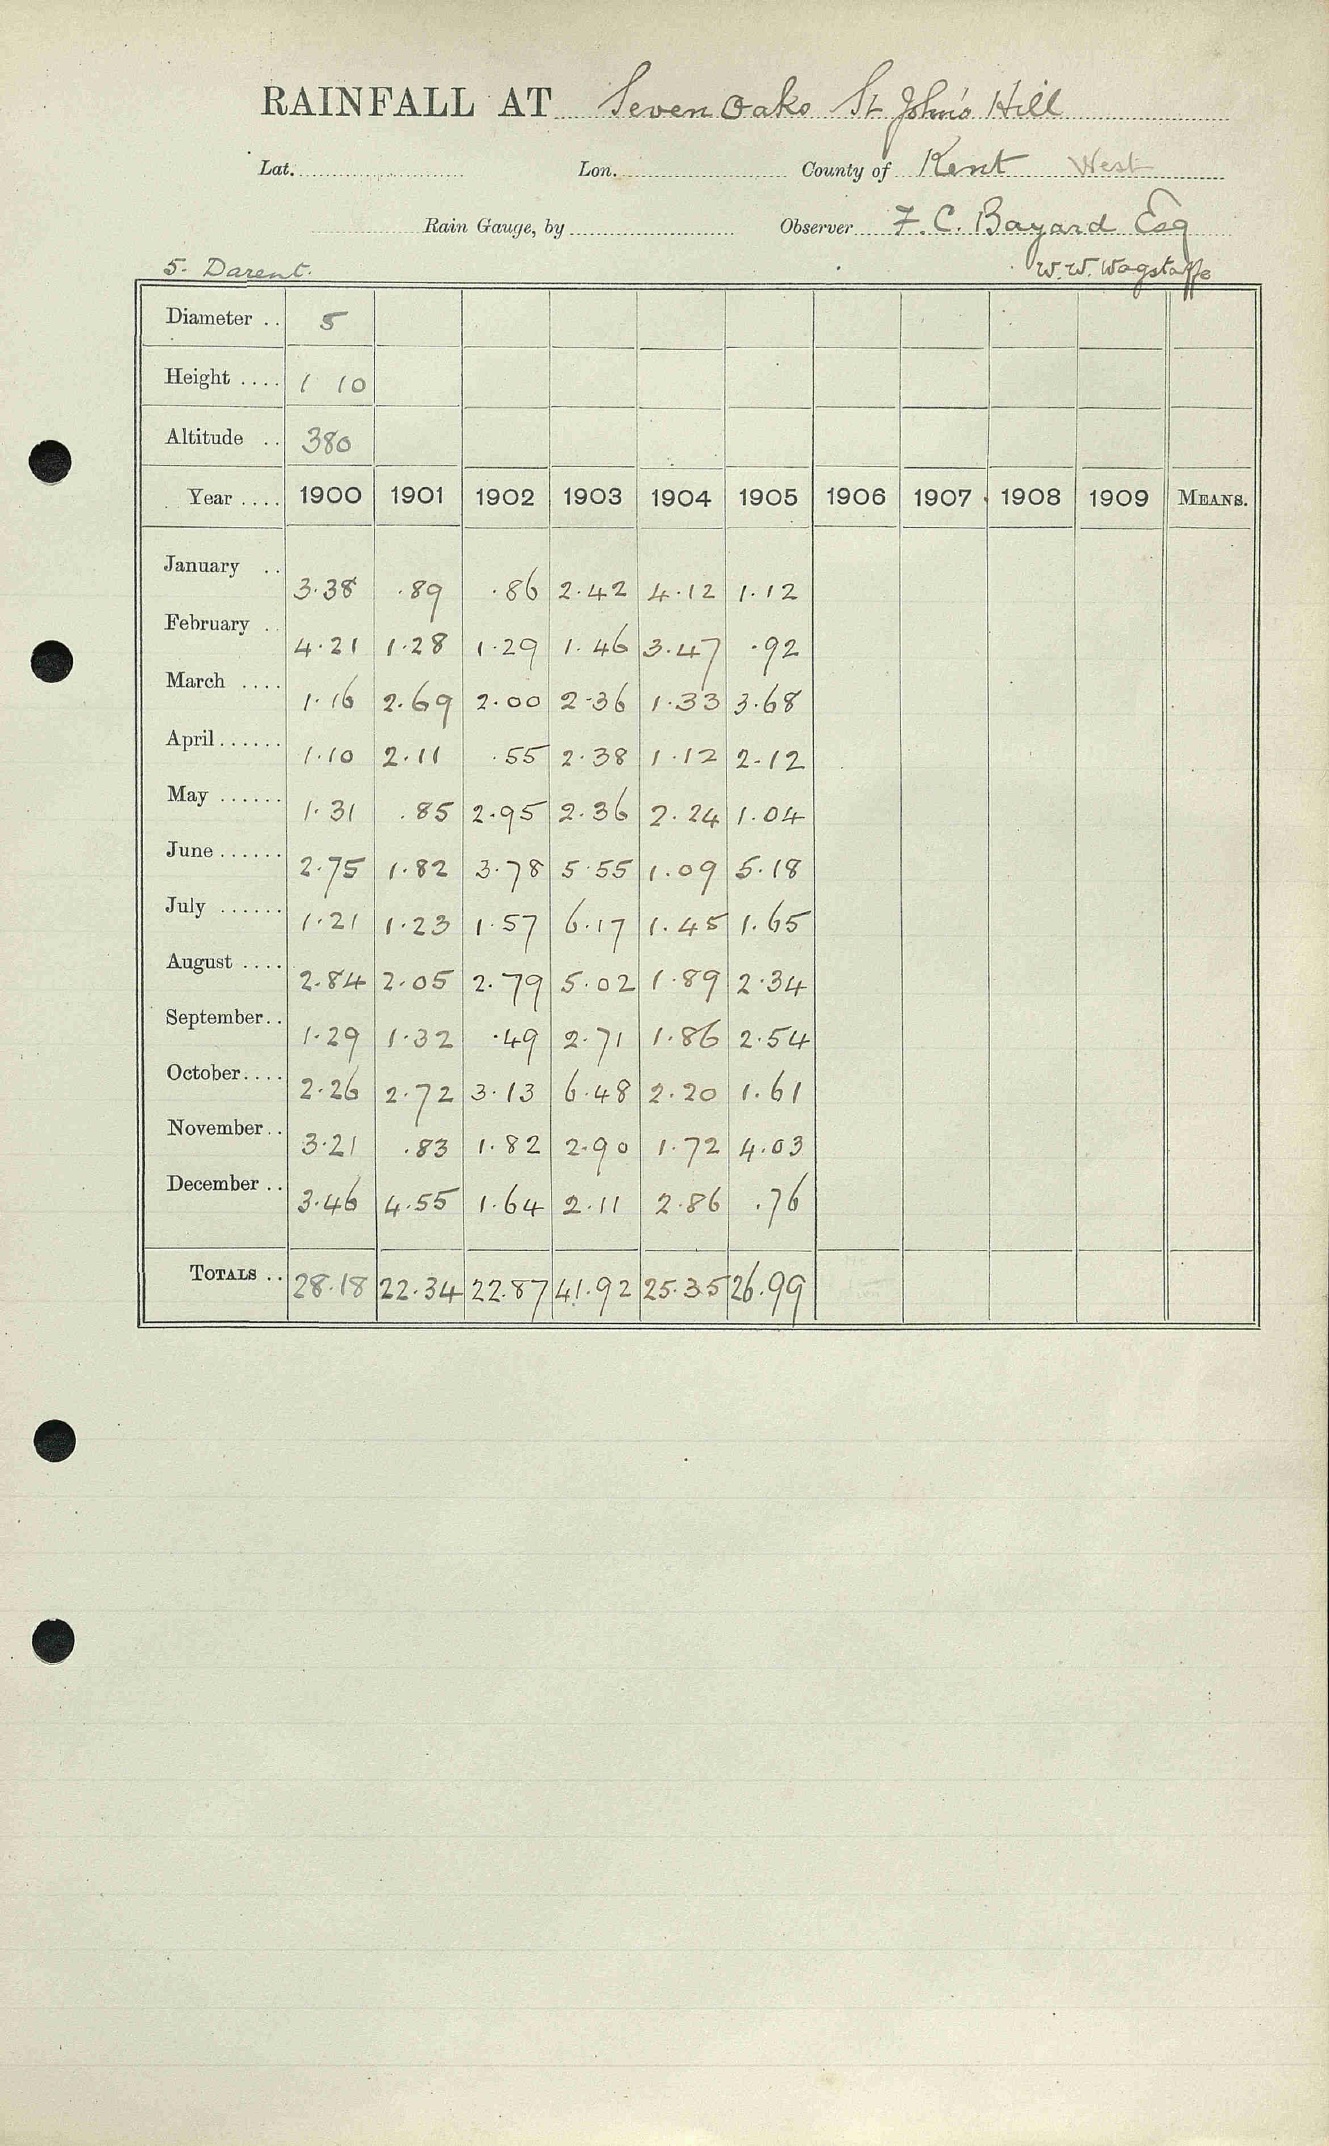 RAINFALL AT Seven Oaks St John's Hill
Lat. Lon. County of Kent West
Rain Gauge, by Observer F. C. Bayard Esq
5. Darent. W. W. Wagstaffe
Diameter .. 5
Height .... 1 10
Altitude .. 380
Year .... 1900 1901 1902 1903 1904 1905 1906 1907 1908 1909 MEANS.
January .. 3.38 .89 .86 2.42 4.12 1.12
February .. 4.21 1.28 1.29 1.46 3.47 .92
March .... 1.16 2.69 2.00 2.36 1.33 3.68
April...... 1.10 2.11 .55 2.38 1.12 2.12
May ...... 1.31 .85 2.95 2.36 2.24 1.04
June ...... 2.75 1.82 3.78 5.55 1.09 5.18
July ...... 1.21 1.23 1.57 6.17 1.45 1.65
August .... 2.84 2.05 2.79 5.02 1.89 2.34
September.. 1.29 1.32 .49 2.71 1.86 2.54
October.... 2.26 2.72 3.13 6.48 2.20 1.61
November.. 3.21 .83 1.82 2.90 1.72 4.03
December .. 3.46 4.55 1.64 2.11 2.86 .76
TOTALS .. 28.18 22.34 22.87 41.92 25.35 26.99